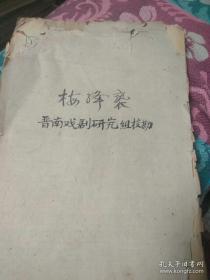 梅绛亵
晋南戏剧研究组校勘
孔夫子旧书网